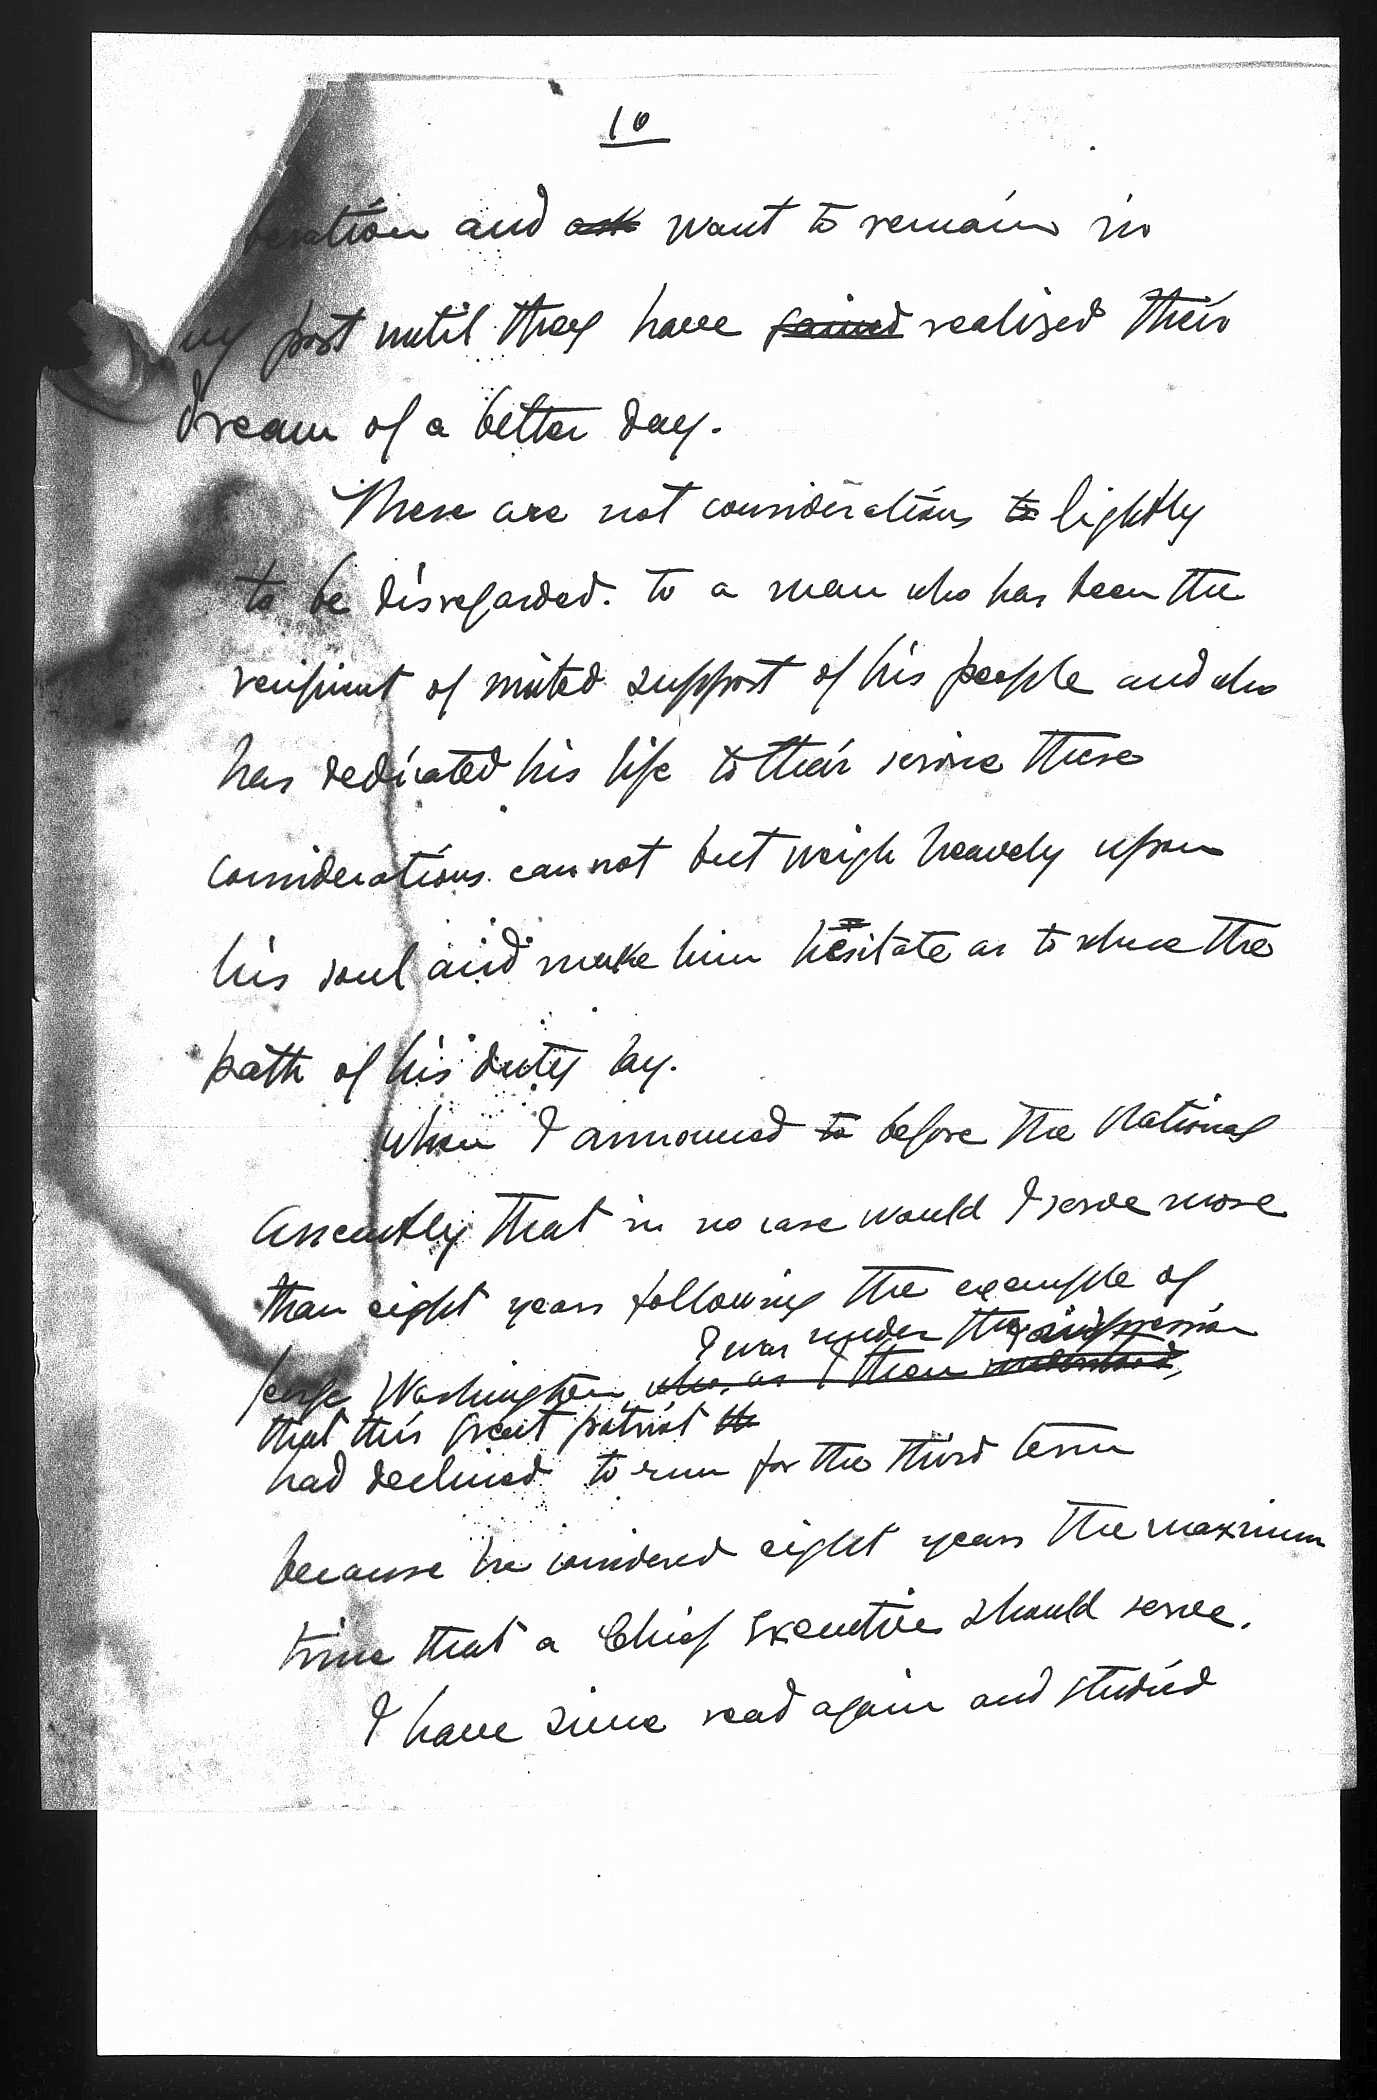 10
beration and ask want to remain in
my post until they have gained realized their
dream of a better day.
These are not considerations to lightly
to be disregarded. to a man who has been the
recipient of united support of his people and who
has dedicated his life to their service these
considerations cannot but weigh heavely upon
his soul and make him hesitate as to where the
path of his duty lay.
When I announced to before the National
Assembly that in no case would I serve more
than eight years following the example of
I was under the impression
George Washington who, as I then understood,
that this great patriot
had declined to run for the third term
because he considered eight years the maximum
time that a Chief Executive should serve.
I have since read again and studied